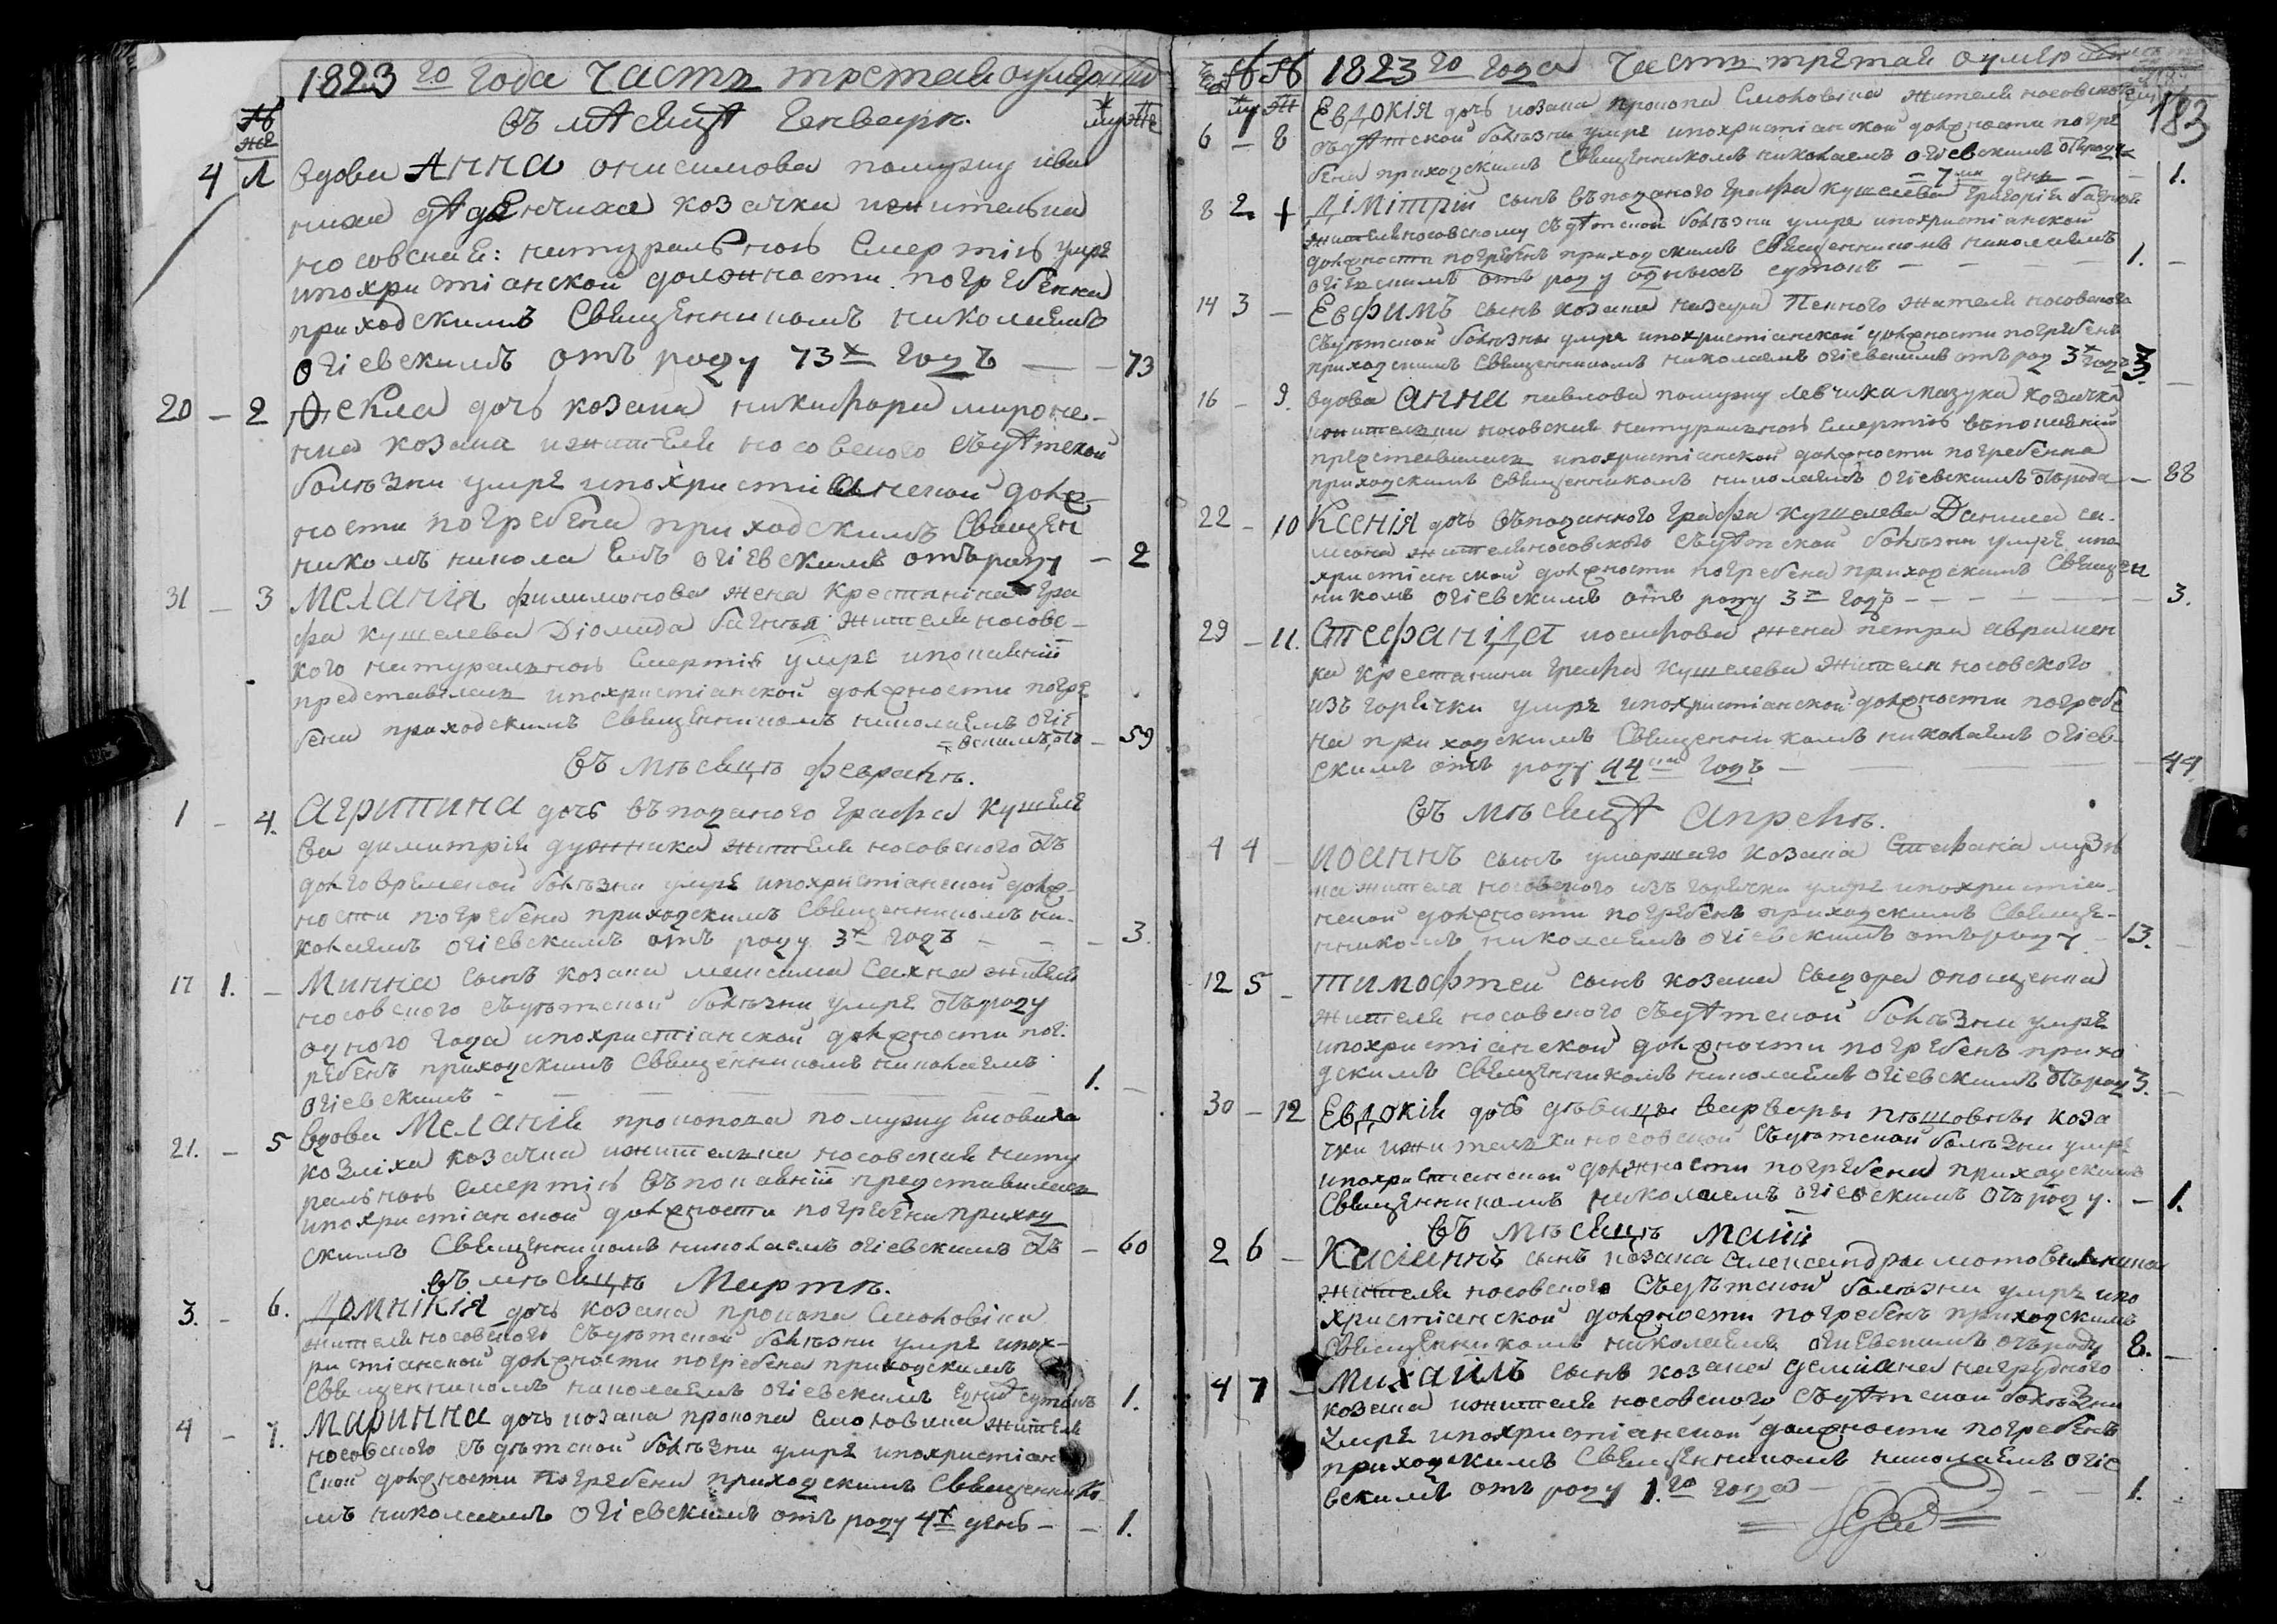 1823 го года Часть третая оумерши
въ мѣсяцѣ Генваря.
№ же муж же
4 1 вдова Анна онисимова помужу ива
ниха козачка ижителька
носовская: натуральною Смертію умре
ипохристіанской должности погребенна
приходскимъ Священникомъ николаемъ
огіевскимъ отъ роду 73х годъ — — 73
20 — 2 Ѳекла дочь козака никифора мироне-
нка козака ижителя носовского Съдѣтской
болѣзни умре ипохристианской долж-
ности погребена приходскимъ Священ
никомъ николаемъ огіевскимъ отъроду — 2
31 — 3 Меланія филимонова жена крестянина гра
фа кушелева Діомида жителя носовс-
кого натуральною Смертію умре ипокаяніи
представилась ипохристіанской должности погре
бена приходскимъ Священникомъ николаемъ огіе
вскимъ отъ — 59
въ мѣсяцѣ февралѣ.
1 — 4. Агрипина дочь въподаного графа кушеле
ва димитрія дужника жителя носовского отъ
долговременой болѣзни умре ипохристіанской долж-
ности погребена приходскимъ Священникомъ ни-
колаемъ огіевскимъ отъ роду 3х годъ — — — 3.
17 1. — Минна сынъ козака максима Сахна жителя
носовского Съдѣтской болѣзни умре отъроду
одного года ипохристіанской должности пог.
ребенъ приходскимъ Священникомъ николаемъ
огіевскимъ — — — 1. —
21. — 5 вдова Меланія прокопова помужу
козліха козачка ижителька носовская нату
ральною Смертію въпокаяніи представилась
ипохристіанской должности погребена приход
скимъ Священникомъ николаемъ огіевскимъ отъ — 60
въ мѣсяцѣ Мартѣ.
3. — 6. Домнікія дочь козака прокопа Смоловіка
жителя носовского Съдѣтской болѣзни умре ипох-
ристіанской должности погребена приходскимъ
Священникомъ николаемъ огіевскимъ сутокъ 1.
4 — 7. Маринна дочь козака прокопа Смоловика жителя
носовского Съдѣтской болѣзни умре ипохристіан
ской должности погребена приходскимъ Священнико
мъ николаемъ огіевскимъ отъ роду 4х день — — 1.
№ № 1823 го года Честь третая оумер
му же 183
Евдокія дочь козака прокопа Смоловіка жителя носовского
6 — 8 съдѣтской болѣзни умре ипохристіанской должности погре
бена приходскимъ Священникомъ николаемъ огіевскимъ отъроду
— 7ми день — — 1.
8 2. + Дімітрій сынъ въподаного графа кушелева григорія
жителяносовскому Съдѣтской болѣзни умре ипохристіанской
должности погребенъ приходскимъ Священникомъ николаемъ
огіевскимъ отъ роду сутокъ — — 1. —
14 3 — Евфимъ сынъ козака назара Пенного жителя носовского
Съдѣтской болѣзни умре ипохристіанской должности погребенъ
приходскимъ Священникомъ николаемъ огіевскимъ отъ род 3х годъ 3. —
16 — 9. вдова Анна павлова помужу левчиха мазука козачка
ижителька носовская натуральною Смертію въпокаяніи
представилась ипохристіанской должности погребенна
приходскимъ Священникомъ николаемъ огіевскимъ отърода — 88
22 — 10 Ксенія дочь въподанного графа кушелева Данила си-
мона жителяносовского Съдѣтской болѣзни умре ипо
христіанской должности погребена приходскимъ Священ
никомъ огіевскимъ отъ роду 3х годъ — — — 3.
29 — 11. Стефаніда иосифова жена петра авраmен
ка крестянина графа кушелева жителя носовского
изъ горячки умре ипохристіанской должности погребе
на приходскимъ Священникомъ николаемъ огіев-
скимъ отъ роду 44 годъ — — 44
въ мѣсяцѣ Апрелѣ.
4 4 — Иоаннъ сынъ умершаго козака Стефана
жителя носовского изъ горячки умре ипохристіа-
нской должности погребенъ приходскимъ Свяще-
нникомъ николаемъ огіевскимъ отъроду — 13. —
12 5 — Тимофтей сынъ козака Сидора онощенка
жителя носовского Съдѣтской болѣзни умре
ипохристіанской должности погребенъ прихо
дскимъ Священникомъ николаемъ огіевскимъ отърод 3. —
30 — 12 Евдокія дочь дѣвицы варвары пѣшовны коза
чки ижительки носовской Съдѣтской болѣзни умре
ипохристианской должности погребена приходскимъ
Священникомъ николаемъ огіевскимъ отъ роду. — 1.
въ мѣсяцѣ Маіи
2 6 — Касіаннъ сынъ козака Александра мотовилника
жителя носовского Съдѣтской болѣзни умре ипо
христіанской должности погребенъ приходскимъ
Священникомъ николаемъ огиевскимъ отъроду 8. —
4 7 — Михаилъ сынъ козака демиана нагрудного
козака ижителя носовского Съдѣтской болѣзни
умре ипохристіанской должности погребенъ
приходскимъ Священникомъ николаемъ огіе
вскимъ отъ роду 1.го года — — — 1.